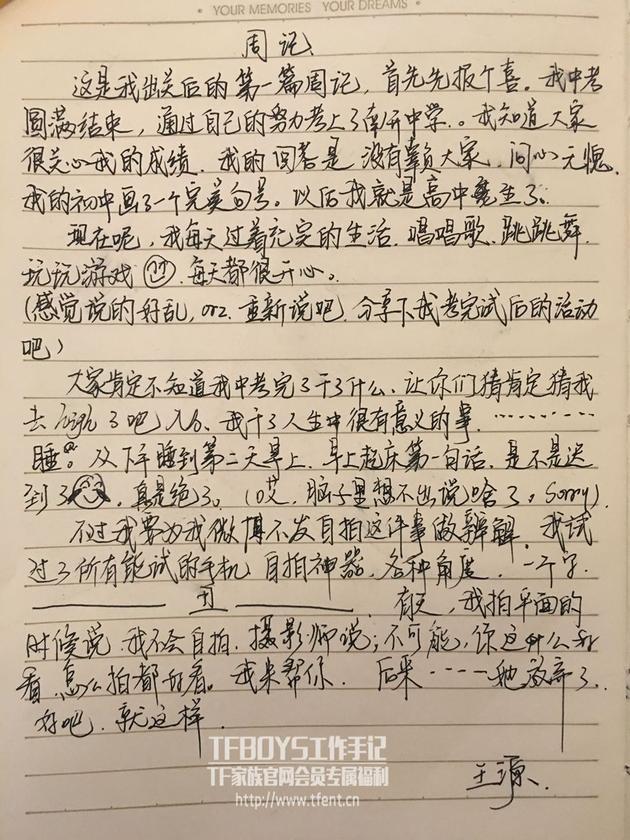 YOUR MEMORIES YOUR DREAMS
周记
这是我出关后的第一篇周记，首先先报个喜。我中考
圆满结束，通过自己的努力考上了南开中学。。我知道大家
很关心我的成绩，我的回答是 没有辜负大家，问心无愧，
我的初中画了一个完美句号。以后我就是高中生了。
现在呢，我每天过着充实的生活，唱唱歌、跳跳舞，
玩玩游戏 每天都很开心。
(感觉说的好乱，orz. 重新说吧，分享下我考完试后的活动
吧)
大家肯定不知道我中考完了干了什么，让你们猜肯定猜我
去 high 了吧 No. 我干了人生中很有意义的事. …………
睡。从下午睡到第二天早上，早上起床第一句话，是不是迟
到了 ，真是绝了。(哎，脑子里想不出说啥了。Sorry)
不过我要为我微博不发自拍这件事做辩解，我试
过了所有能试的手机，自拍神器，各种角度，一个字
丑 有天，我拍平面的
时候说 我不会自拍，摄影师说；不可能，你这么好
看，怎么拍都好看。我来帮你. 后来---- 她放弃了.
好吧. 就这样.
王源.
TFBOYS工作手记
TF家族官网会员专属福利
http://www.tfent.cn